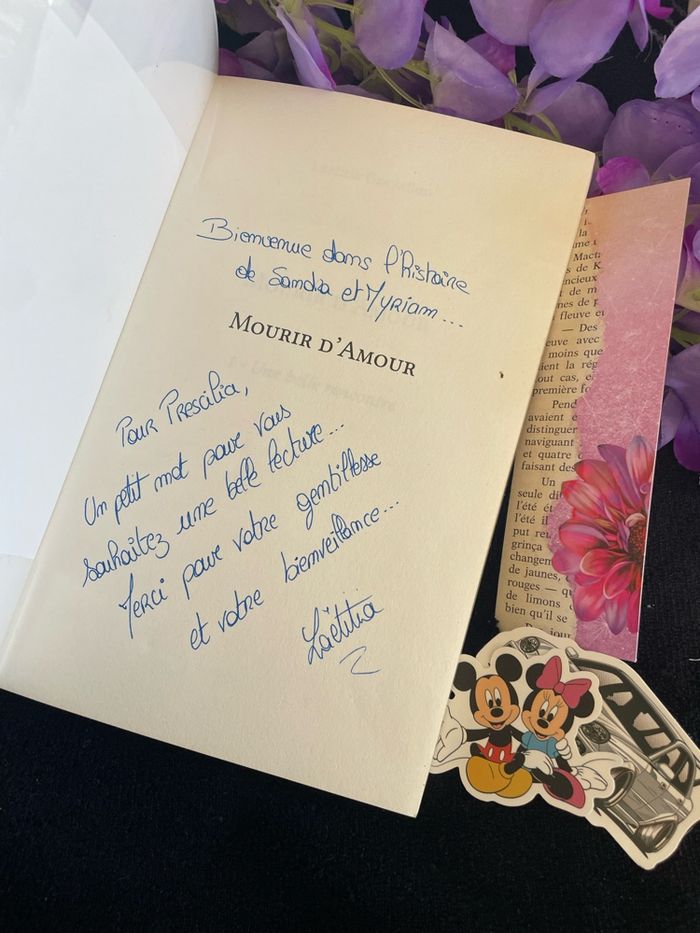 Bienvenue dans l'histoire
de Sandra et Myriam...
MOURIR D'AMOUR
Pour Prescilia,
Un petit mot pour vous
souhaitez une belle lecture...
Merci pour votre gentillesse
et votre bienveillance...
Laëtitia
la
Macta
s de K
encieux
t de m
nes de p
fleuve e
— Des
euve avec
moins que
ient la rég
out cas, e
première fo
Pend
avaient e
distinguer
naviguant
et quatre
faisant des
Un
seule di
l'été ét
l'été il
put re
grinça
changem
de jaunes,
rouges — qu
de limons
bien qu'il se